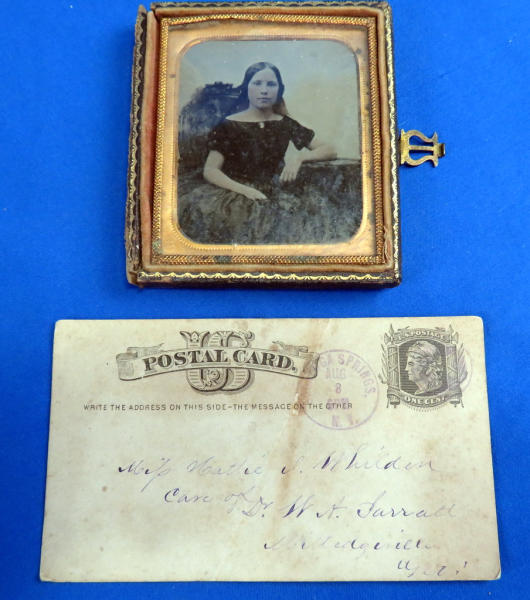 US
POSTAL CARD.
WRITE THE ADDRESS ON THIS SIDE-THE MESSAGE ON THE OTHER
GA SPRINGS
AUG
8
N.Y.
U.S. POSTAGE
ONE CENT
Miss Hattie J. Whilden
Care of Dr. W. A. Jarratt
Milledgeville